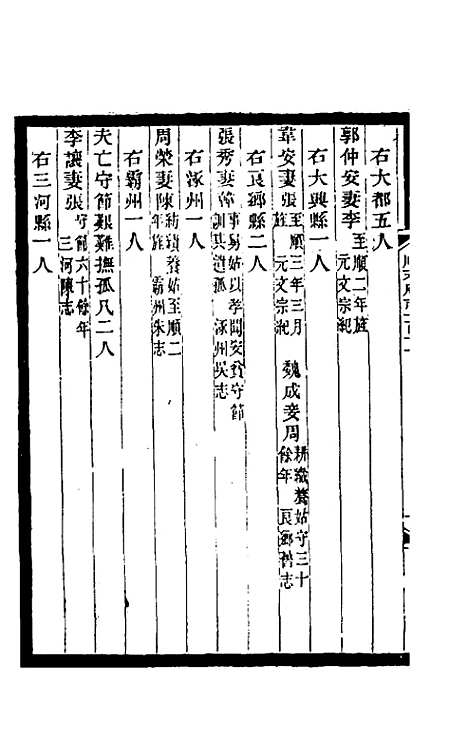 右大都五人
郭仲安妻李至順二年旌元文宗紀
右大興縣一人
韋安妻張至順三年三月旌元文宗紀 魏成妾周耕織養姑守三十餘年良鄉舊志
右良鄉縣二人
張秀妻韓事舅姑以孝聞安貧守節訓其遺孤涿州吳志
右涿州一人
周榮妻陳紡績養姑至順二年旌霸州朱志
右霸州一人
夫亡守節艱難撫孤凡二人
李讓妻張守節六十餘年三河陳志
右三河縣一人